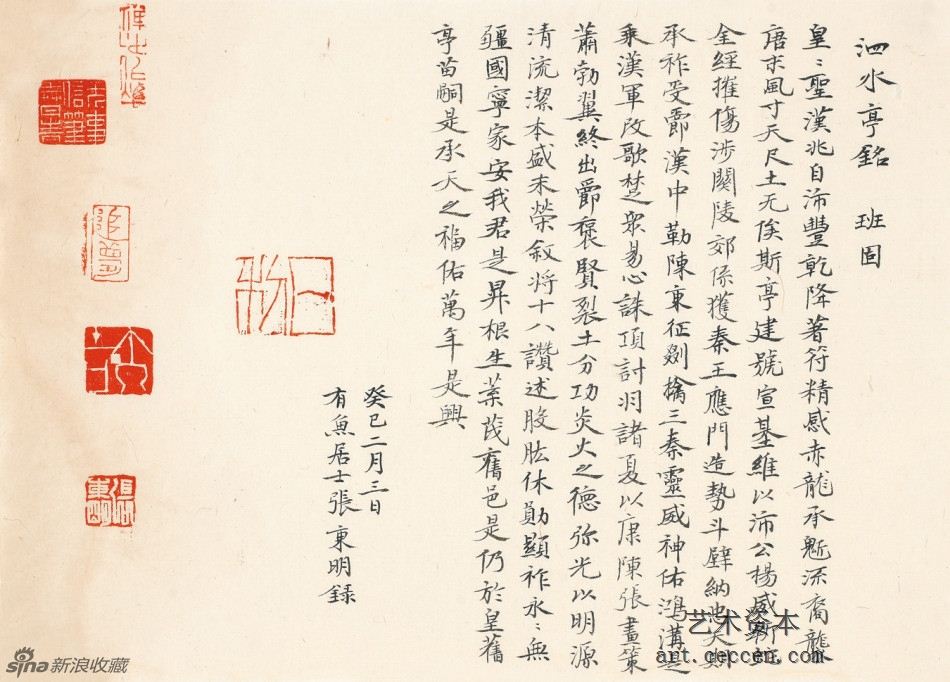 泗水亭銘 班固
皇〻聖漢兆自沛豐乾降著符精感赤龍承魁流裔龍
唐末風寸天尺土无俟斯亭建號宣基維以沛公楊威斬
金經摧傷涉關陵郊係獲秦王應門造勢斗壁納忠天期
承祚受爵漢中勒陳東征剟擒三秦靈威神佑鴻溝是
乘漢軍改歌楚眾易心誅項討羽諸夏以康陳張畫策
蕭勃翼終出爵褒賢裂土分功炎火之德弥光以明源
清流潔本盛末榮敘將十八讚述股肱休勛顯祚永〻無
疆國寧家安我君是昇根生葉茂舊邑是仍於皇舊
亭苗嗣是承天之福佑萬年是興
癸巳二月三日
有魚居士張東明錄
張東明
艺术资本
art.ceccen.com
sina新浪收藏